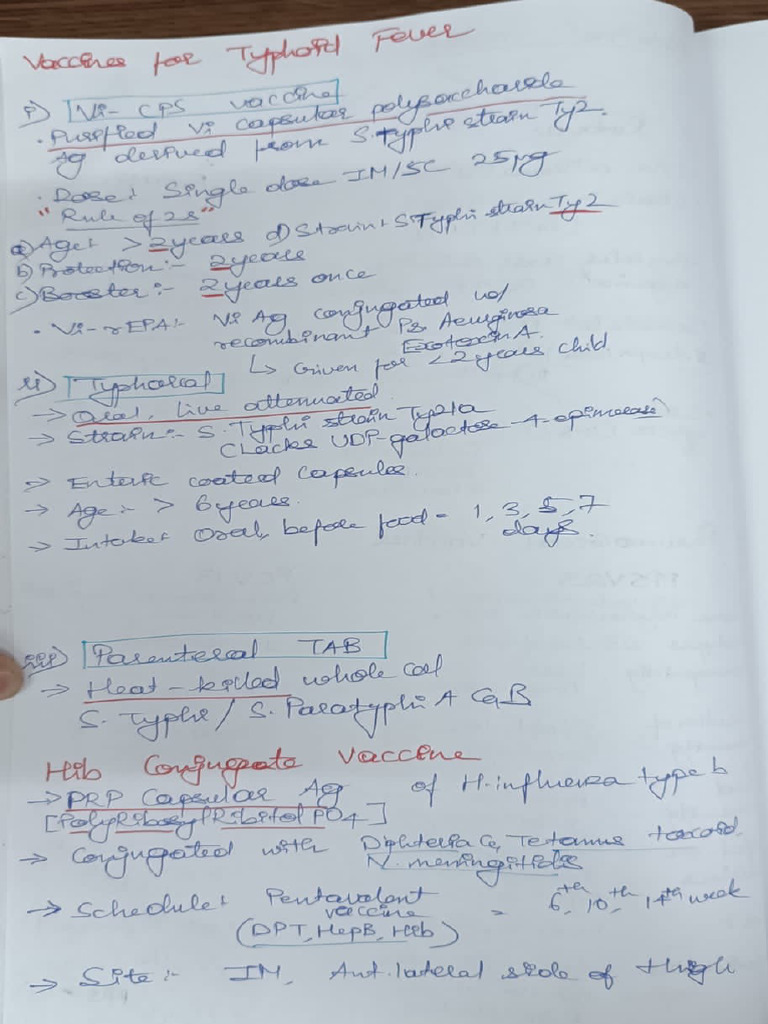 Vaccines for Typhoid Fever
i) Vi-CPS vaccine
· Purified Vi capsular polysaccharide
Ag derived from S.typhi strain Ty2.
· Dose: Single dose IM/SC 25μg
"Rule of 2s"
a) Age: > 2years d) Strain: S.Typhi strain Ty2
b) Protection:- 2years
c) Booster:- 2years once
· Vi-rEPA:- Vi Ag conjugated w/
recombinant Ps Aeruginosa
Exotoxin A.
↳ Given for <2years child
ii) Typhoral
→ Oral, live attenuated
→ Strain:- S.Typhi strain Ty21a
(Lacks UDP-galactose-4-epimerase)
→ Enteric coated capsules.
→ Age:- > 6years.
→ Intake: Oral, before food - 1, 3, 5, 7
days.
iii) Parenteral TAB
→ Heat-killed whole cell
S. Typhi / S. Paratyphi A & B
Hib Conjugate Vaccine
→ PRP Capsular Ag of H.influenza type b
[PolyRibosylRibitol PO4]
→ Conjugated with Diphteria &, Tetanus toxoid
N. meningitidis
→ Schedule: Pentavalent - 6th, 10th, 14th week
vaccine
(DPT, HepB, Hib)
→ Site:- IM, Ant.lateral side of thigh